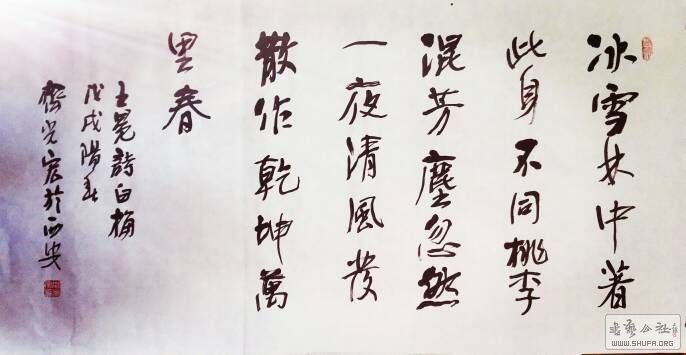 冰雪林中著
此身不同桃李
混芳塵忽然
一夜清風發
散作乾坤萬
里春
王冕詩白梅
戊戌陽春
於西安
書藝公社
WWW.SHUFA.ORG